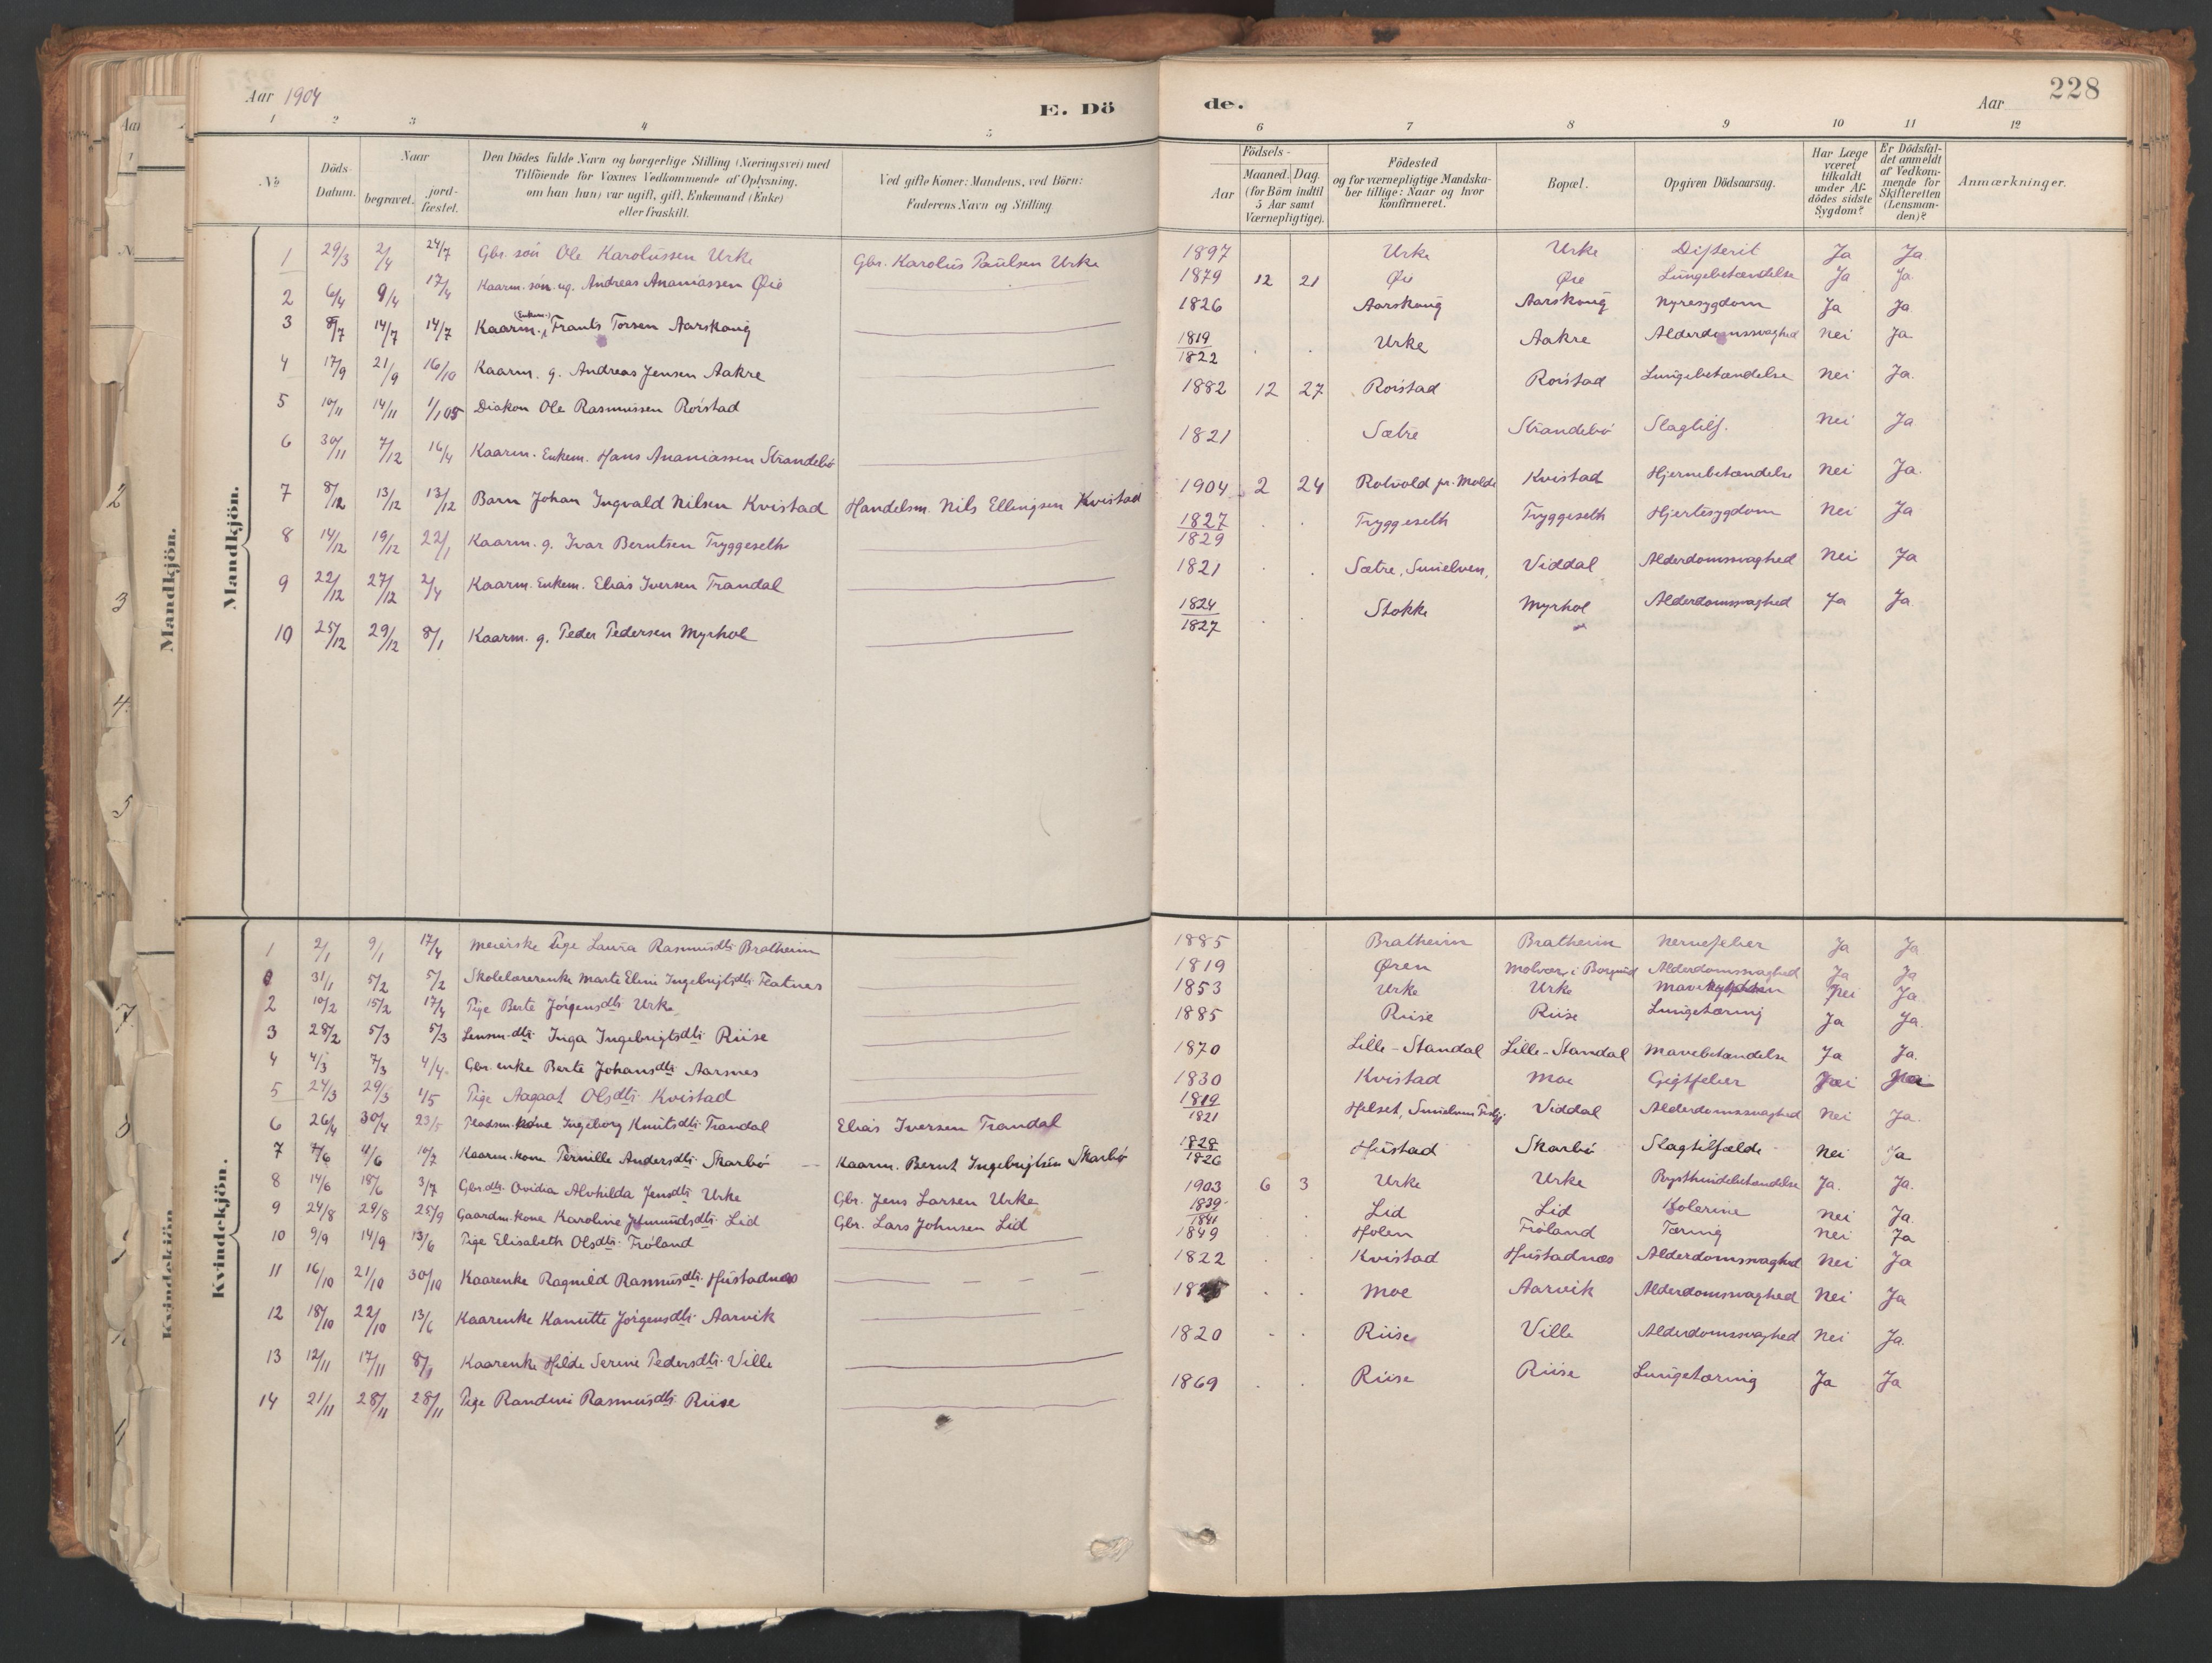 Aar 1904
E. Dö
de.
Aar
228
1 2 3 4 5 6 7 8 9 10 11 12
No
Döds-Datum.
Naar
begravet.
jord-fæstet.
Den Dödes fulde Navn og borgerlige Stilling (Næringsvei) med
Tilföiende for Voxnes Vedkommende af Oplysning,
om han (hun) var ugift, gift, Enkemand (Enke)
eller fraskilt.
Ved gifte Koner: Mandens, ved Börn:
Faderens Navn og Stilling
Födsels-
Aar
Maaned. Dag.
(for Börn indtil
5 Aar samt
Værnepligtige).
Födested
og for værnepligtige Mandska-
ber tillige: Naar og hvor
konfirmeret.
Bopæl.
Opgiven Dödsaarsag.
Har Læge
været
tilkaldt
under Af-
dödes sidste
Sygdom?
Er Dödsfal-
det anmeldt
af Vedkom-
mende for
Skifteretten
(Lensman-
den)?
Anmærkninger.
Mandkjön.
1 29/3 2/4 24/7 Gbr. sön Ole Karolussen Urke Gbr. Karolus Paulsen Urke 1897 Urke Urke Difterit Ja Ja
2 6/4 9/4 17/4 Kaarm. sön. ug. Andreas Ananiassen Øie 1879 12 21 Øie Øie Lungebetændelse Ja Ja
3 8/7 14/7 14/7 Kaarm. (Enkem.) Frants Torsen Aarskoug 1826 Aarskoug Aarskoug Nyresygdom Ja Ja
4 17/9 21/9 16/10 Kaarm. g. Andreas Jensen Aakre 1819/1822 Urke Aakre Alderdomssvaghed Nei Ja
5 10/11 14/11 1/1 05 Diakon Ole Rasmussen Rörstad 1882 12 27 Rörstad Rörstad Lungebetændelse Nei Ja.
6 30/11 7/12 16/4 Kaarm. Enkem. Hans Ananiassen Strandebö 1821 Sætre Strandebö Slagtilf. Nei Ja
7 8/12 13/12 13/12 Barn Johan Ingvald Nilsen Kvistad Handelsm. Nils Ellingsen Kvistad 1904 2 24 Rotvold pr. Molde Kvistad Hjernebetændelse Nei Ja.
8 14/12 19/12 22/1 Kaarm. g. Ivar Berntsen Tryggeseth 1827/1829 Tryggeseth Tryggeseth Hjertesygdom Nei Ja
9 22/12 27/12 2/4 Kaarm. Enkem. Elias Iversen Trandal 1821 Sætre, Sunelven, Viddal Alderdomssvaghed Nei Ja
10 25/12 29/12 8/1 Kaarm. g. Peder Pedersen Myrhol 1824/1827 Stokke Myrhol Alderdomssvaghed Ja Ja
Kvindekjön.
1 2/1 9/1 17/4 Meierske Pige Laura Rasmusdtr. Bratheim 1885 Bratheim Bratheim Nervefeber Ja Ja
0 31/1 5/2 5/2 Skolelærerenke Marte Eline Ingebrigtsdtr. Flatnes 1819 Øren Molvær i Borgund Alderdomssvaghed Ja Ja
2 10/2 15/2 17/4 Pige Berte Jörgensdtr. Urke 1853 Urke Urke Nei Ja
3 28/2 5/3 5/3 Lensm.dtr. Inga Ingebrigtsdtr. Riise 1885 Riise Riise Lungetæring Ja Ja.
4 4/3 7/3 4/4. Gbr. enke Berte Johansdtr. Aarsnes 1870 Lille-Standal Lille-Standal Mavebetændelse Ja Ja.
5 24/3 29/3 1/5 Pige Aagaat Olsdtr. Kvistad 1830 Kvistad Moe Gigtfeber
6 26/4 30/4 23/5 Pladsm.kone Ingeborg Knutsdtr. Trandal Elias Iversen Trandal 1819/1821 Helset, Sunelven Viddal Alderdomssvaghed Nei Ja.
7 7/6 11/6 10/7 Kaarm.kone Pernille Andersdtr. Skarbö Kaarm. Bernt Ingebrigtsen Skarbö 1828/1826 Hustad Skarbö Slagtilfælde Nei Ja
8 14/6 18/6 3/7 Gbr.dtr. Ovidia Alvhilda Jensdtr. Urke Gbr. Jens Larsen Urke 1903 6 3 Urke Urke Brysthindebetændelse Ja. Ja.
9 24/8 29/8 25/9 Gaardm.kone Karoline Edmundsdtr. Lid Gbr. Lars Johnsen Lid 1839/1841 Lid Lid Kolerine Nei Ja.
10 9/9 14/9 13/6 Pige Elisabeth Olsdtr. Fröland 1849 Holen Fröland Tæring Nei Ja
11 16/10 21/10 30/10 Kaarenke Ragnild Rasmusdtr. Hustadnæs 1822 Kvistad Hustadnæs Alderdomssvaghed Nei Ja
12 18/10 22/10 13/6 Kaarenke Kanutte Jörgensdtr. Aarvik Moe Aarvik Alderdomssvaghed Nei Ja
13 12/11 17/11 8/1 Kaarenke Hilde Serine Pedersdtr. Ville 1820 Riise Ville Alderdomssvaghed Nei Ja.
14 21/11 28/11 28/11 Pige Randine Rasmusdtr. Riise 1869 Riise Riise Lungetæring Ja Ja